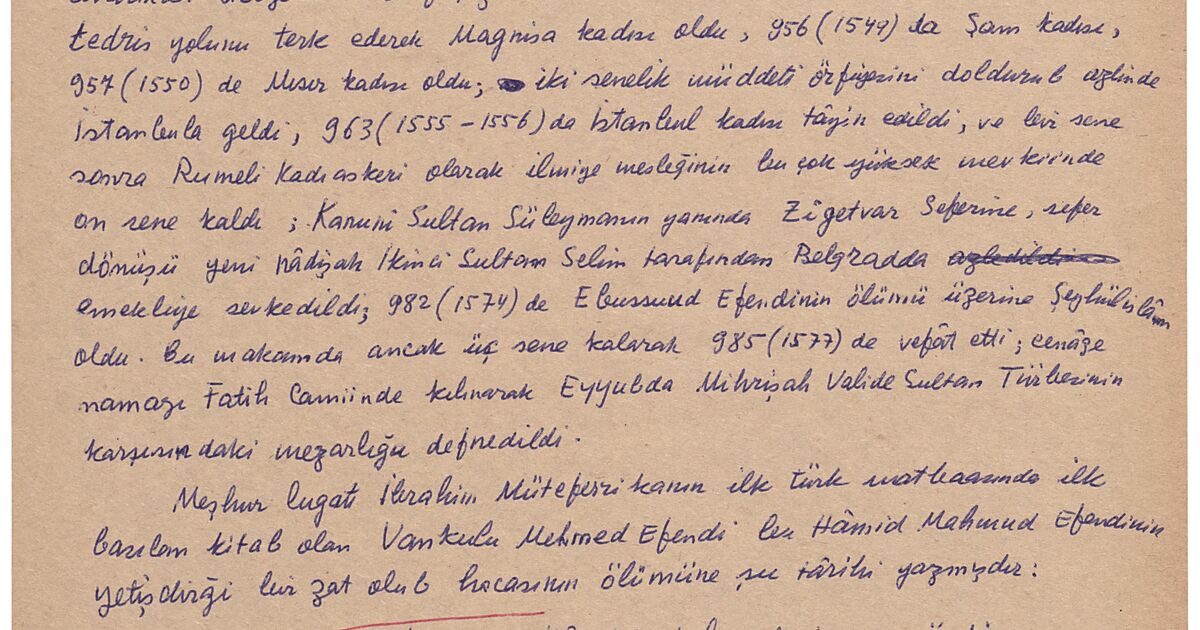 tedris yolunu terk ederek Magnisa kadısı oldu, 956 (1549) da Şam kadısı,
957 (1550) de Mısır kadısı oldu; iki senelik müddeti örfiyesini doldurub azlinde
İstanbula geldi, 963 (1555-1556) da İstanbul kadısı tâyin edildi, ve bir sene
sonra Rumeli Kadıaskeri olarak ilmiye mesleğinin bu çok yüksek mevkiinde
on sene kaldı; Kanuni Sultan Süleymanın yanında Zigetvar Seferine, sefer
dönüşü yeni pâdişah İkinci Sultan Selim tarafından Belgradda azledildi
emekliye sevkedildi; 982 (1574) de Ebussuud Efendinin ölümü üzerine Şeyhülislâm
oldu. Bu makamda ancak üç sene kalarak 985 (1577) de vefât etti; cenâze
namazı Fatih Camiinde kılınarak Eyyubda Mihrişah Valide Sultan Türbesinin
karşısındaki mezarlığa defnedildi.
Meşhur lugatı İbrahim Müteferrikanın ilk türk matbaasında ilk
basılan kitab olan Vankulu Mehmed Efendi bu Hâmid Mahmud Efendinin
yetişdirği bir zat olub hocasının ölümüne şu târihi yazmışdır: